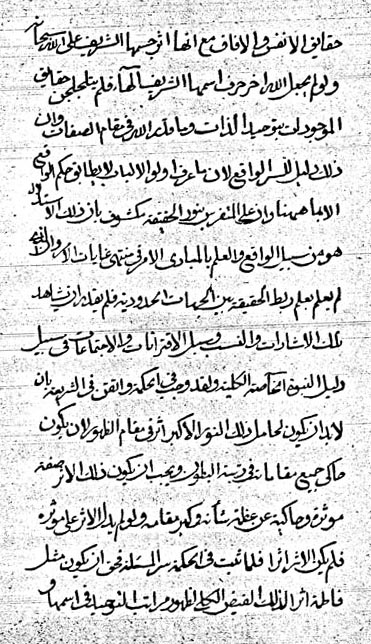 حقايق الانفس و الافاق مع انها اثر جسمها الشريف على الله سبحانه
ولو لم يجعل الله اخر حرف اسمها الشريف الهاء فلم يتلجلج حقايق
الموجودات بتوحيد الذات وما دل الله في مقام الصفات وان
ذلك دليل السر الواقع لان ما عرف اولوا الالباب لا يطابق حكم
الا ما هيهنا وان على المتفرس بنور الحقيقة مكشوف بان ذلك
هو من سبيل الواقع والعلم بالمبادي الامر في منتهى غايات
لم يعلم بعلم ربط الحقيقة بين الجهات الحدودية فلم يقدر ان يشاهد
تلك الاشارات والنسب وسبل الاقترانات والاجتماعات في سبيل
دليل النبوة الخاصة الكلية ولقد وجب في الحكمة واتقن في الشريعة بان
لابد ان يكون لحامل ذلك النور الاكبر اثر في مقام الظهور لان يكون
حاكي جميع مقاماته في رتبة البطون ويجب ان يكون ذلك الاثر صفة
مؤثرة وحاكية عن عظمة شأنه وكبر مقامه ولو لم يدل الاثر على مؤثره
فلم يكن الاثر اثرا فلما ثبت في الحكمة سر المسئلة فحق ان يكون مثل
فاطمة اثرا لذلك الفيض الكلي لظهور مراتب التوحيد في اسمها و